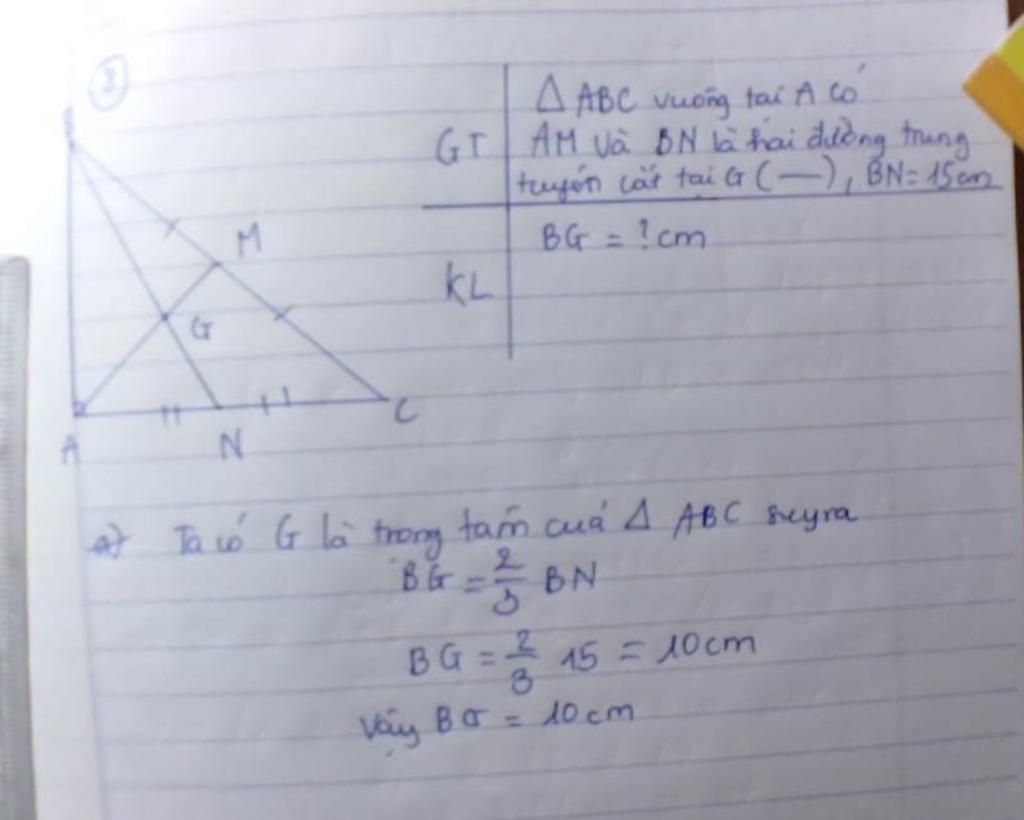 2
B
△ ABC vuông tại A có
GT
AM và BN là hai đường trung
tuyến cắt tại G (—), BN = 15cm
BG = ? cm
KL
M
G
A
N
C
a) Ta có G là trọng tâm của △ ABC suy ra
BG = 2/3 BN
BG = 2/3 15 = 10cm
Vậy BG = 10cm